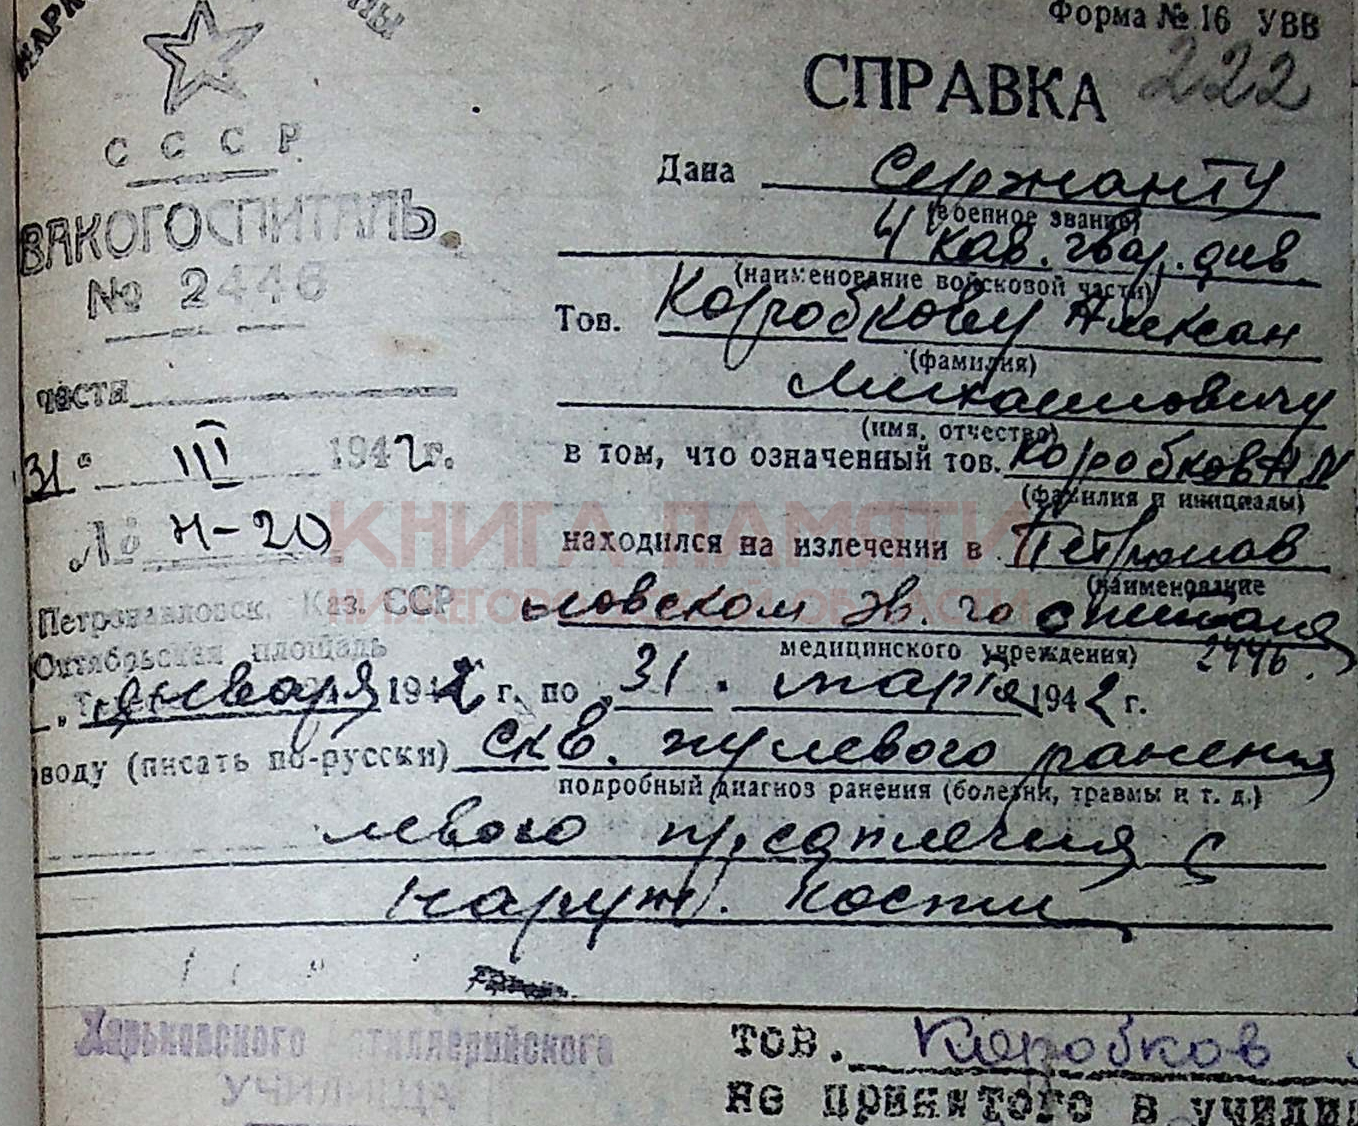 Форма № 16 УВВ
222
СПРАВКА
СССР
ЭВАКОГОСПИТАЛЬ
№ 2446
части
31 " III 1942 г.
№ Н-20
Петропавловск, Каз. ССР
Октябрьская площадь
Дана Сержанту
(военное звание)
4 кав. гвар. див
(наименование войсковой части)
Тов. Коробкову Алексан
(фамилия)
Михайловичу
(имя, отчество)
в том, что означенный тов. Коробков А М
(фамилия и инициалы)
находился на излечении в Петропав
(наименование
ловском эв. госпитале
медицинского учреждения) 2446.
января 1942 г. по " 31 " марта 1942 г.
воду (писать по-русски) скв. пулевого ранения
подробный диагноз ранения (болезни, травмы и т. д.)
левого предплечия с
наруж. кости
Харьковского Артиллерийского
УЧИЛИЩА
тов. Коробков
не принятого в учили
КНИГА ПАМЯТИ
НИЖЕГОРОДСКОЙ ОБЛАСТИ